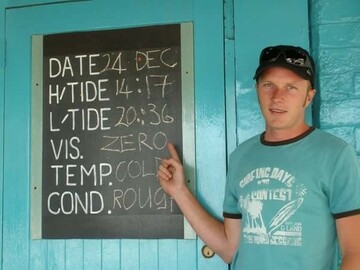 DATE 24 DEC
H/TIDE 14:17
L/TIDE 20:36
VIS. ZERO
TEMP. COLD
COND. ROUGH
SURFING DAYS
CONTEST